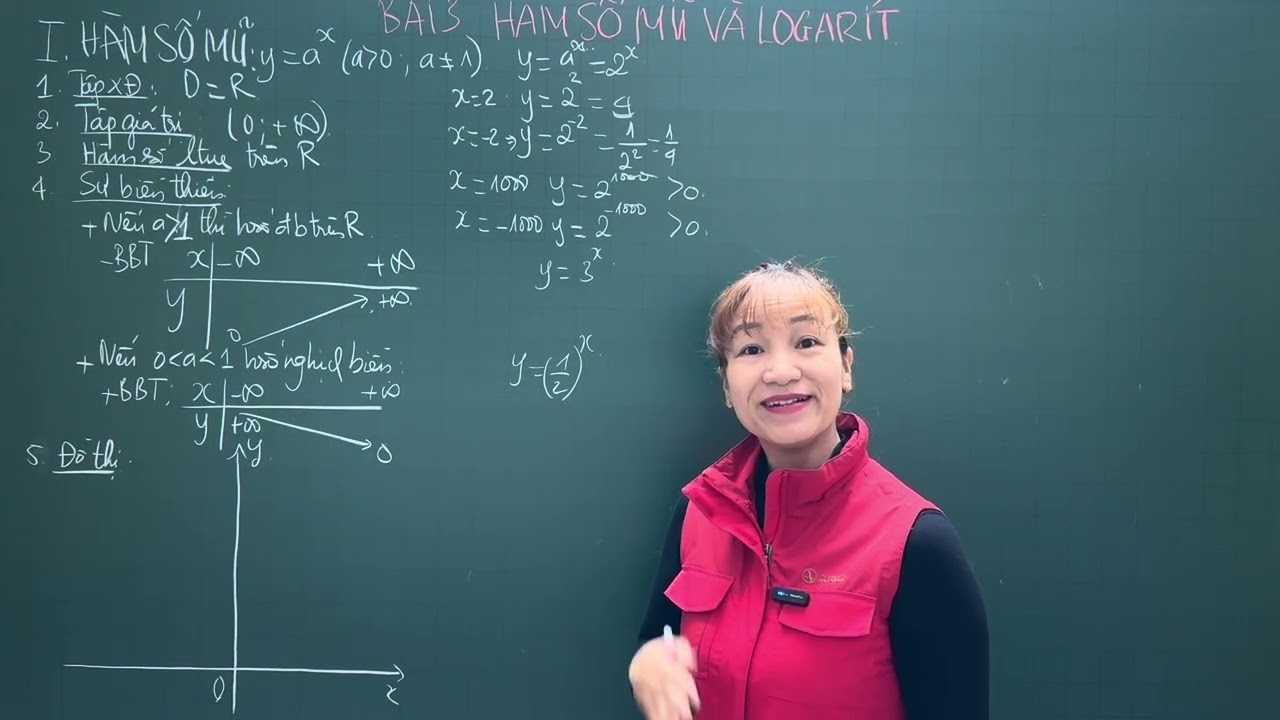 BÀI 3 HÀM SỐ MŨ VÀ LOGARÍT.
I. HÀM SỐ MŨ: y = a^x (a>0; a≠1)
1. Tập XĐ: D = R
2. Tập giá trị: (0; +∞)
3 Hàm số ltục trên R
4. Sự biến thiên:
+ Nếu a>1 thì hsố đb trên R
- BBT x -∞ +∞
y 0 +∞
+ Nếu 0<a<1 hsố nghịch biến:
+ BBT; x -∞ +∞
y +∞ 0
5. Đồ thị.
y
0 x
y = a^x = 2^x
x=2 y = 2^2 = 4
x=-2 => y = 2^-2 = 1/2^2 = 1/4
x = 1000 y = 2^1000 >0.
x = -1000 y = 2^-1000 >0.
y = 3^x
y = (1/2)^x